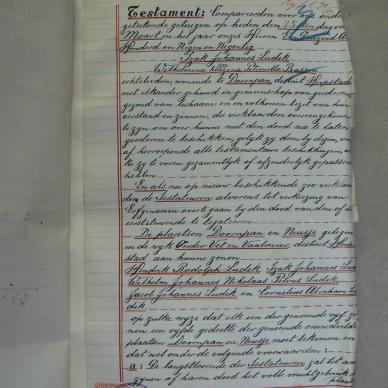 Testament: Compareerden voor ons onder
getekende getuigen op heden den 25sten dag van
Maart in het jaar onzes Heeren Een Duizend Acht
Honderd en Negen en Negentig
Izak Johannes Ludik
Wilhelmina Petronella Basson
echtelieden, wonende te Doornpan district Hoopstad
met elkander gehuwd in gemeenschap van goederen
gezond van lichaam en in volkomen bezit van hun
verstand en zinnen, die verklaarden overeengekomen
te zijn om over hunne met den dood na te laten
goederen te beschikken, gelijk zij doen bij dezen
of herroepende alle testamentaire beschikkingen
zij te voren gezamentlijk of afzonderlijk gepasseerd
hebben
En als nu op nieuw beschikkende zoo verklaar
den de Testateuren alvorens tot verkiezing van
Erfgenamen over te gaan, bij den dood van den of de
eerststervende te legateeren
De plaatsen Doornpan en Neusje gelegen
in de wijk Onder Vet en Vaalrivier, district Hoop
stad aan hunne zonen
Hendrik Rudolph Ludik, Izak Johannes Lu
Wilhelm Johannes Nikolaas Petrus Ludik
Jacob Johannes Ludik en Cornelius Abraham Lu
dik
op zulke wijze dat elk een der genoemde vijf zo
nen een vijfde gedeelte der genoemde onverdeelde
plaatsen Doornpan en Neusje moet bekomen en
dat wel onder de volgende voorwaarden:—
a: De langstlevende der Testateuren zal tot aan
zijnen of haren dood het volle vruchtgebruik
plaat